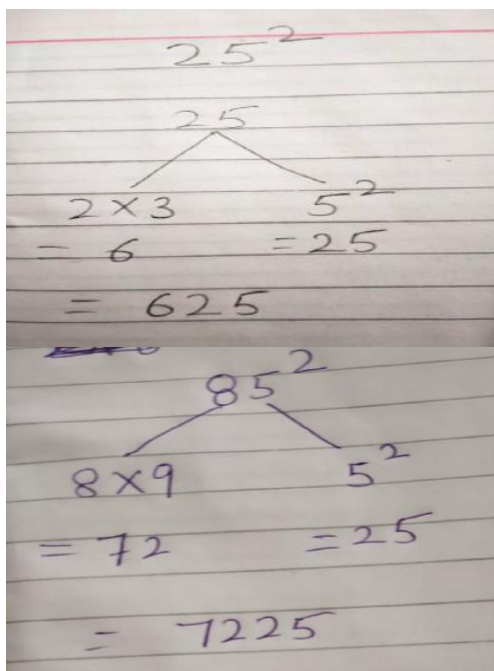 25²
25
2 × 3 5²
= 6 = 25
= 625
85²
8 × 9 5²
= 72 = 25
= 7225